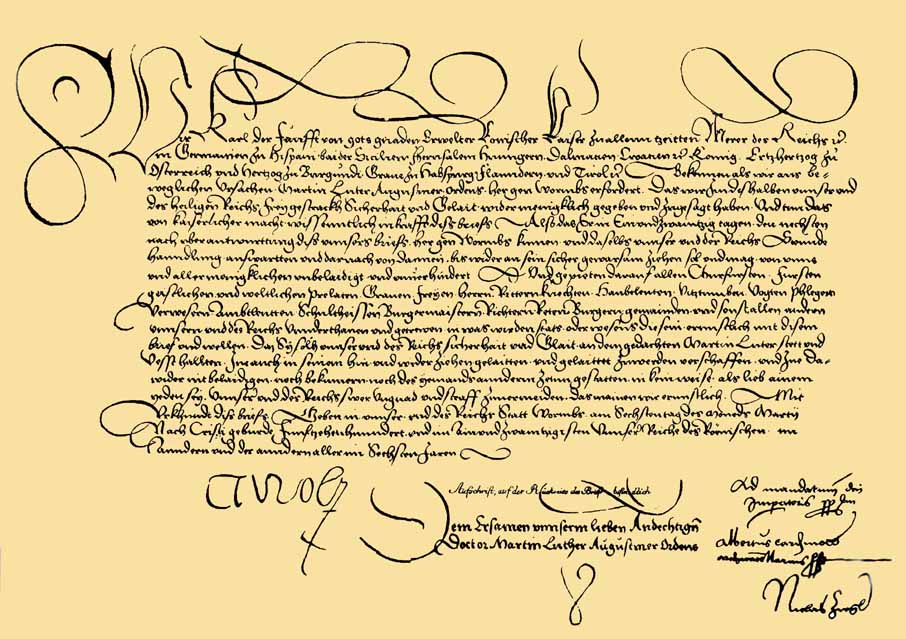 Wir Karl der Fünfft von gots gnaden Erwelter Römischer Kaiser zu allenn tzeitten Merer des Reichs
in Germanien zu Hispani baider Sicilien Jherusalem Hungern Dalmacien Croacien Konig Ertzhertzog zu
Österreich und Hertzog zu Burgundi Grave zu Habspurg Flanndern und Tirol Bekennen als wir aus be-
weglichen Ursachen Martin Luter Augustiner Ordens her gen Wormbs erfordert Das wir Jm deshalben unnser und
des heiligen Reichs Frey gestrackh Sicherheit und Gelait wider menigklich gegeben und zugesagt haben Und tun das
von kaiserlicher macht wissenntlich in krafft ditz briefs Also das Er in Einundzwaintzig tagen den nechsten
nach uberantwurttung ditz unnsers briefs her gen Wormbs kumen und daselbs unnser und der Reichs Stennde
hanndlung auswartten und darnach von dannen bis wider an sein sicher gewarsam ziehen sol und mag von unns
und allermenigklichen unbelaidigt und unverhindert Und gepieten darauf allen Churfursten Fursten
geistlichen und weltlichen Prelaten Graven Freyen herrn Rittern knechten Haubtleuten Vitztumben Vogten Phlegern
Verwesern Ambtleuten Schultheissen Burgermaistern Richtern Reten Burgern gemainden und sonst allen andern
unnsern und des Reichs Unnderthanen und getrewen in was wirden stats oder wesens die sein ernnstlich mit disem
brief und wellen Das Sy solh unnser und des Reichs sicherheit und Glait an dem gedachten Martin Luter stett und
Vesst hallten Jn auch in seinem hin und wider ziehen gelaitten und gelaittet zuwerden verschaffen und Jne da-
wider nit belaidigen noch bekumern noch des yemands anndern zethun gestatten in kein weise als lieb ainem
yeden sey Unnser und des Reichs swere Ungnad und straff zuvermeiden das mainen wir ernnstlich Mit
Vrkhundt ditz briefs Geben in unnser und des Reichs Statt Wormbs am Sechsten tag des Moneds Marty
Nach Cristi geburdt Funfftzehenhundert und im ainundzwaintzigisten Unnser Reiche des Romischen im
Anndern und der anndern aller im Sechsten Jaren
Carolus
Aufschrift, auf der Rückseite des Briefs befindlich
Dem Ersamen unnserm lieben Andechtign
Doctor Martin Luther Augustiner Ordens
Ad mandatum dni
Imperatoris ppm
Albertus cardinalis
Niclas Ziegl